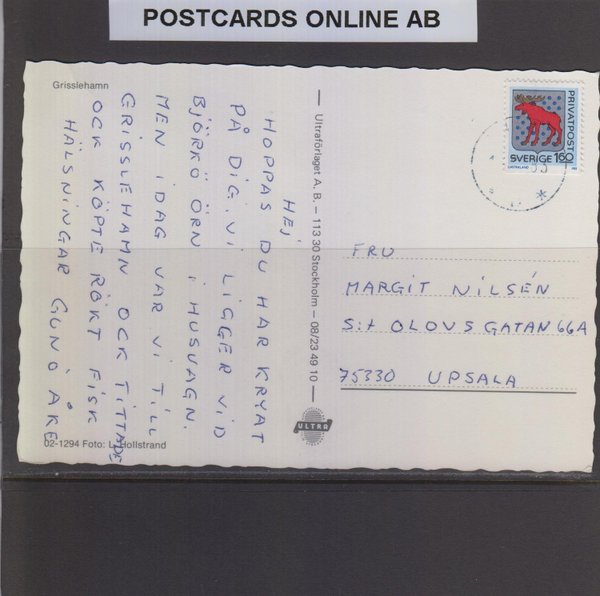 POSTCARDS ONLINE AB
Grisslehamn
HEJ
HOPPAS DU HAR KRYAT
PÅ DIG. VI LIGGER VID
BJÖRKÖ ÖRN I HUSVAGN.
MEN IDAG VAR VI TILL
GRISSLEHAMN OCK TITTADE
OCK KÖPTE RÖKT FISK
HÄLSNINGAR GUN O ÅKE
02-1294 Foto: L. Hollstrand
Ultraförlaget A. B. – 113 30 Stockholm – 08/23 49 10
ULTRA
PRIVATPOST
SVERIGE 160
FRU
MARGIT NILSÉN
S:t OLOVSGATAN 66A
75330 UPSALA